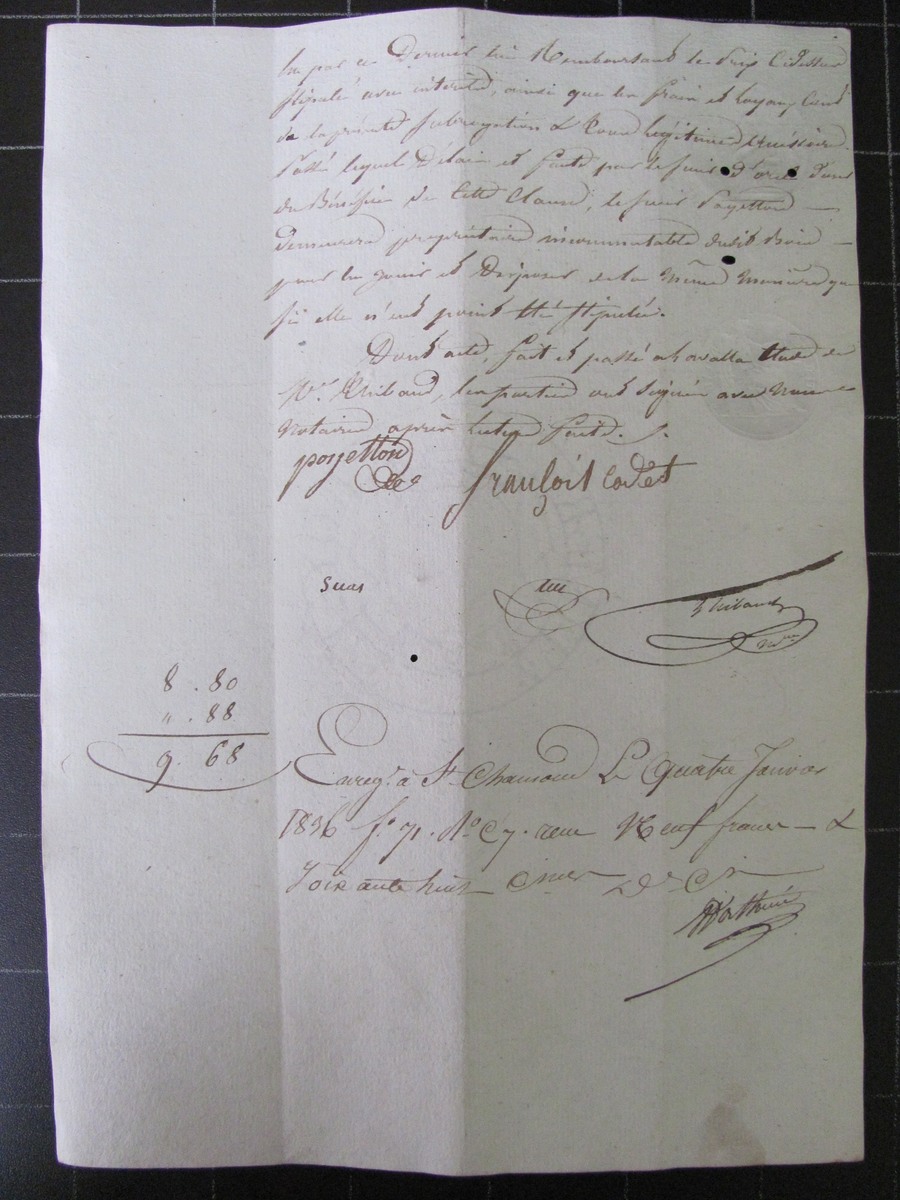 par ce Dernier lui Remboursant le prix Cidessus
Stipulé avec intérêts, ainsi que les frais et loyaux Couts
de la présente Subrogation & Tous légitimes accessoires.
Passé lequel Délai et faute par le sieur d'user
du Bénéfice de Cette Clause, le sieur Poyetton
Demeurera propriétaire incommutable dudit Bois
pour en jouir et Disposer de la même manière que
si elle n'eut point été stipulée.
Dont acte, fait et passé a Etude de
Me. Thibaud, les parties ont signés avec Nous
Notaires après lecture faite.
poyetton françois Cadet
Thibaud
Nre
8 . 80
" . 88
9 . 68
Enreg. à St. Chamond Le Quatre Janvier
1836 fo. 71. Ro. C 7. reçu Neuf francs &
Soixante huit Cmes Dme Cis